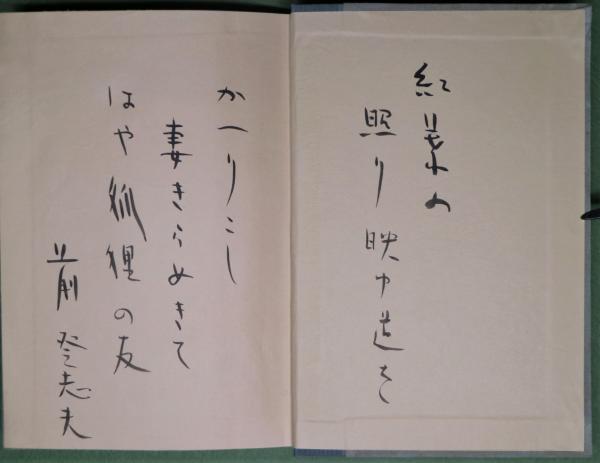 紅葉の
照り映ゆ道を
かへりこし
妻きらめきて
はや狐狸の友
前登志夫